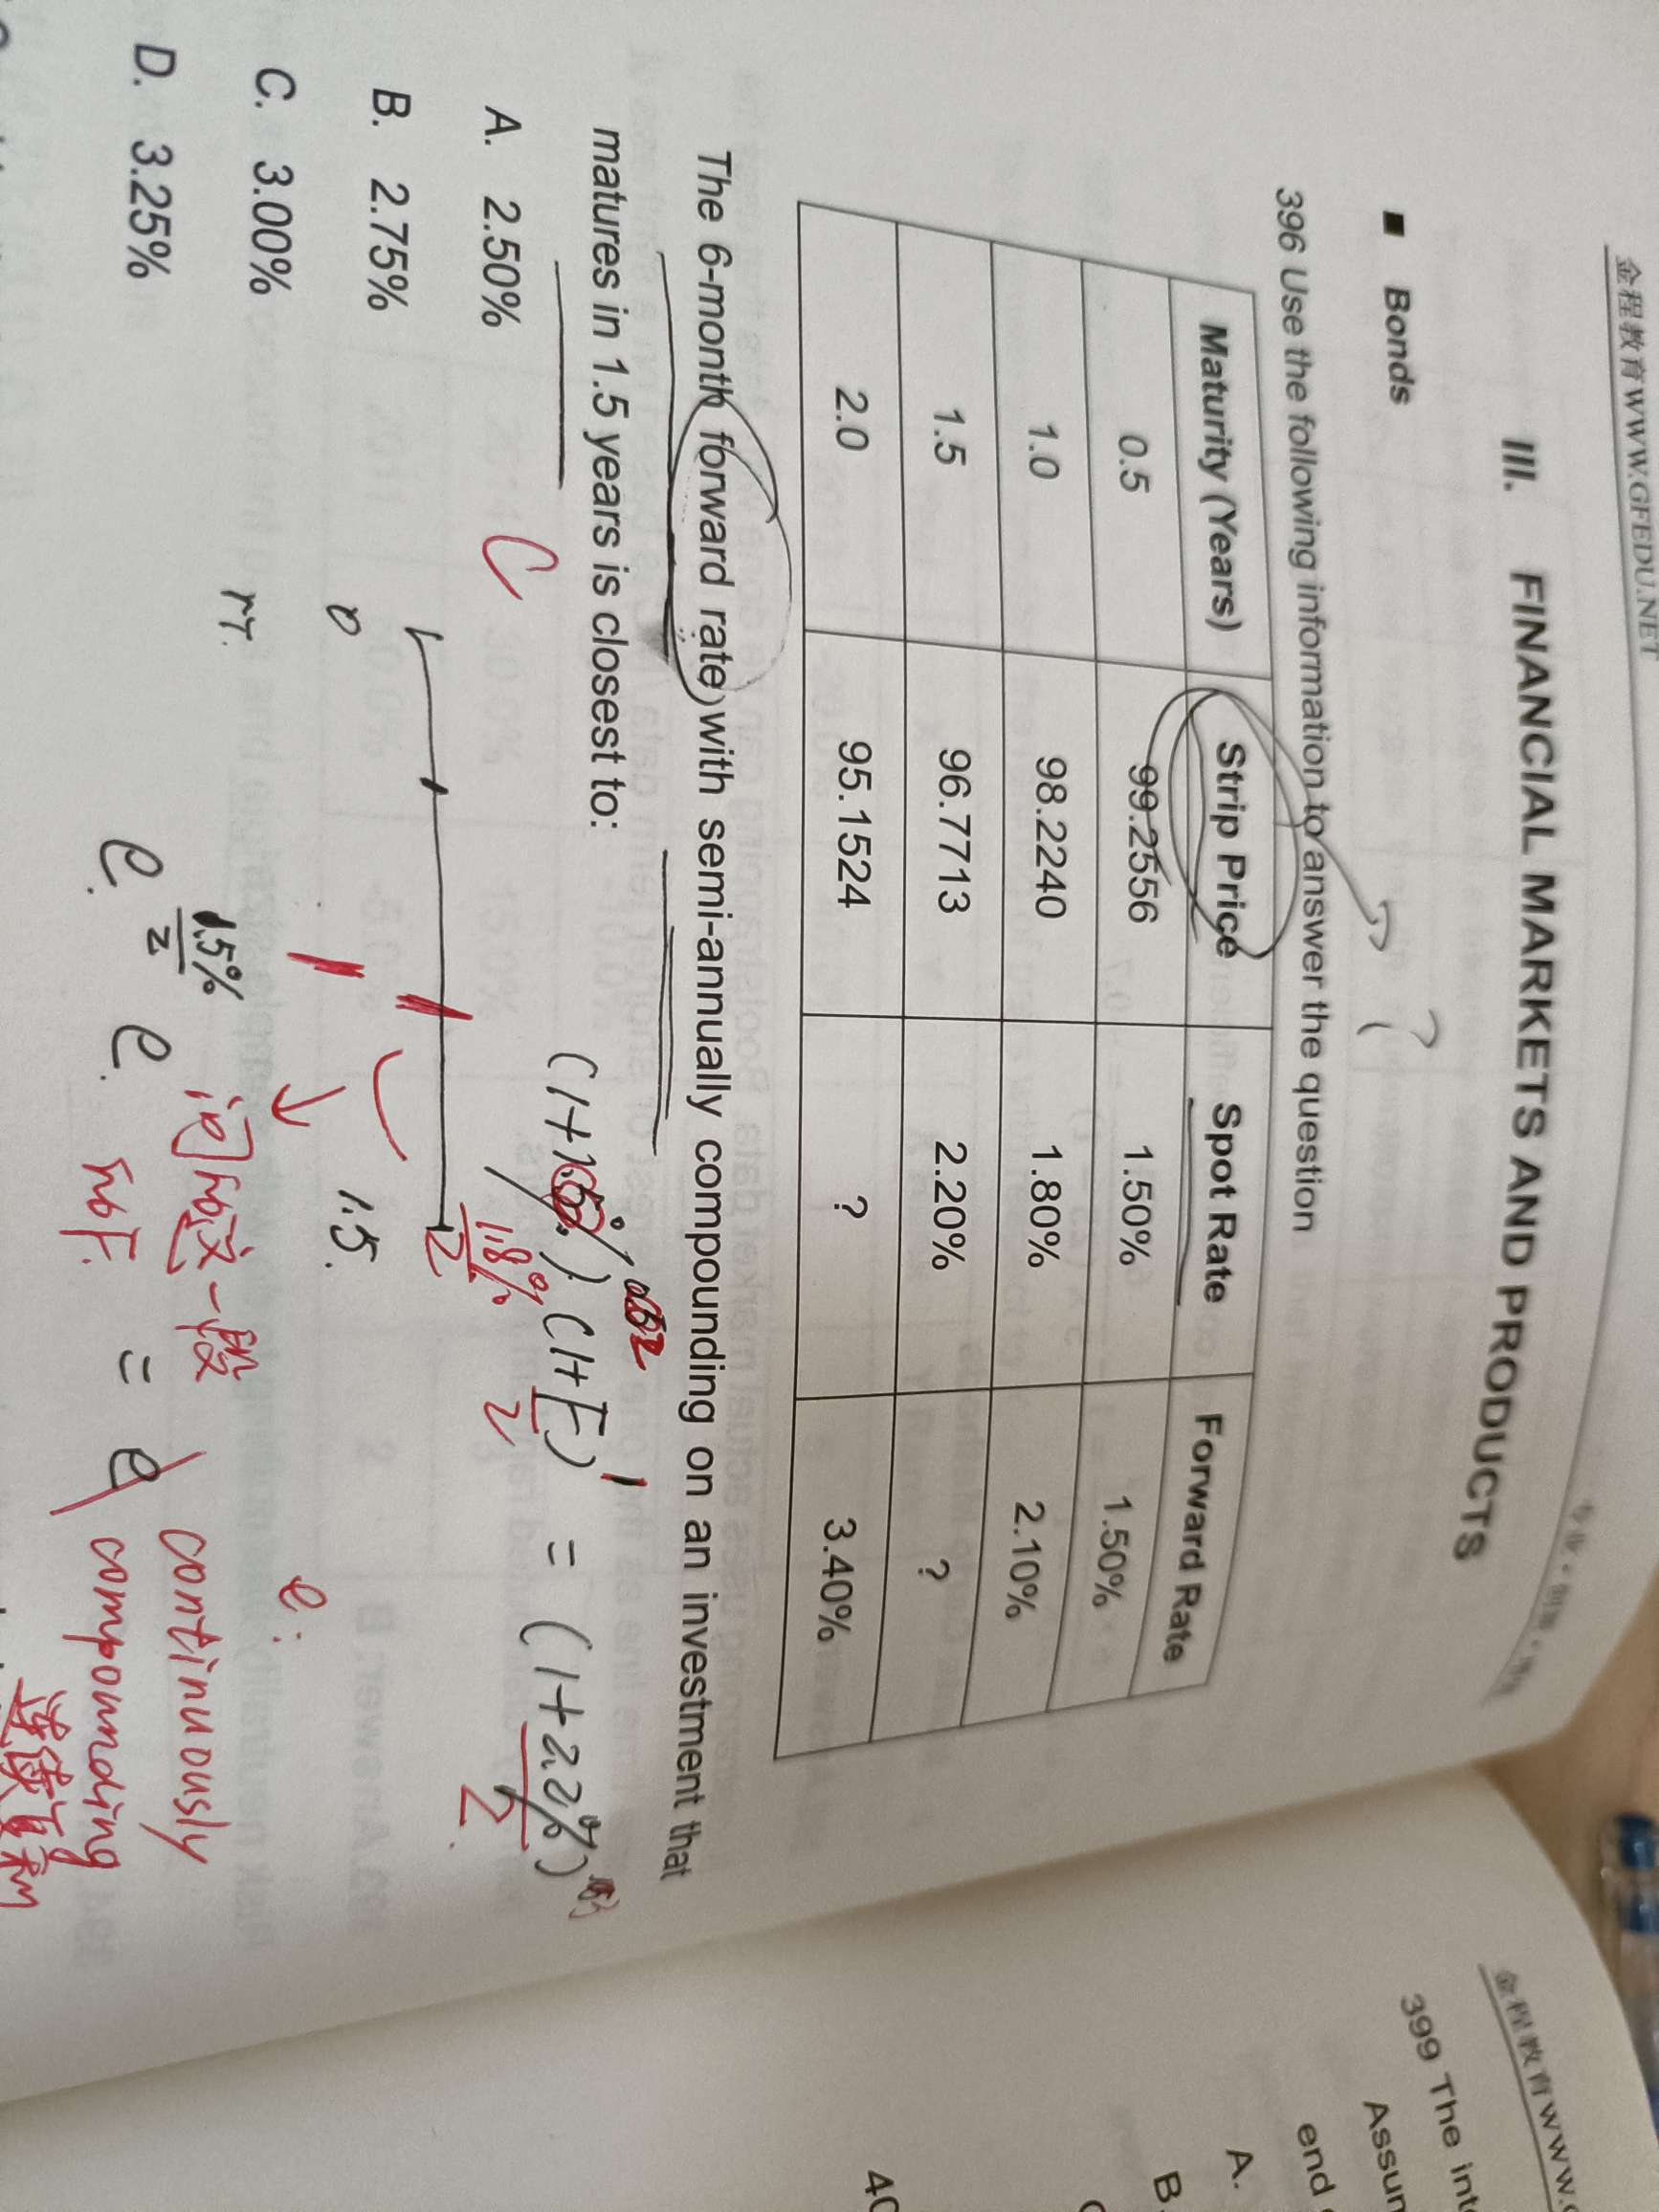 金程教育WWW.GFEDU.NET
III. FINANCIAL MARKETS AND PRODUCTS
■ Bonds
396 Use the following information to answer the question
Maturity (Years) Strip Price Spot Rate Forward Rate
0.5 99.2556 1.50% 1.50%
1.0 98.2240 1.80% 2.10%
1.5 96.7713 2.20% ?
2.0 95.1524 ? 3.40%
?
The 6-month forward rate with semi-annually compounding on an investment that
matures in 1.5 years is closest to:
A. 2.50%
B. 2.75%
C. 3.00%
D. 3.25%
C
(1+ 1.8% / 2)² (1+ F / 2)¹ = (1+ 2.2% / 2)
0 1 1.5
rT.
e. 1.5% / 2 e. = e
问哪一段
e:
continuously
compounding
连续复利
金程教育WWW.
399 The int
Assum
end
A.
B.
40